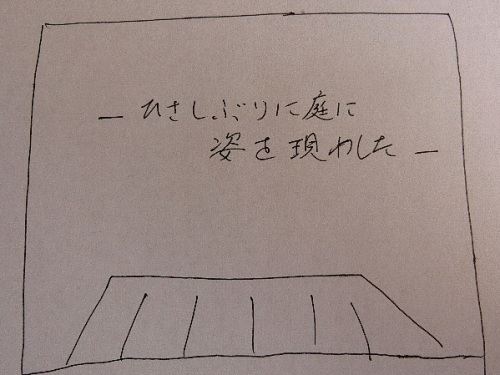 ― ひさしぶりに庭に
姿を現わした ―